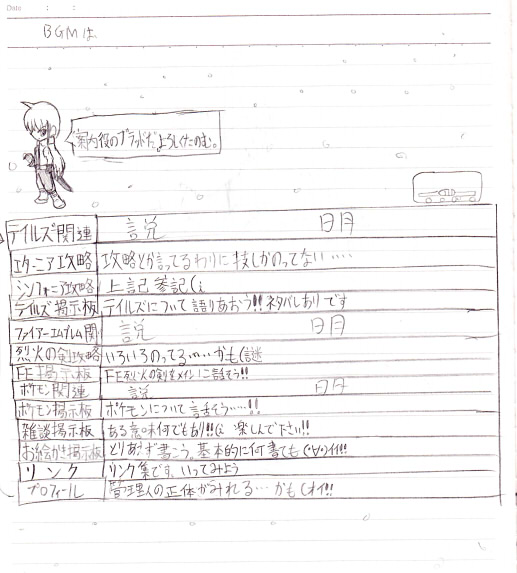 Date : :
BGMは
案内役のブラッドだ、よろしくたのむ。
テイルズ関連 説 明
エターニア攻略 攻略とか言ってるわりに技しかのってない……
シンフォニア攻略 上記参記(ぇ
テイルズ掲示板 テイルズについて語りあおう!!ネタバレありです
ファイアーエムブレム関 説 明
烈火の剣攻略 いろいろのってる……かも(謎
FE掲示板 FE烈火の剣をメインに話そう!!
ポケモン関連 説 明
ポケモン掲示板 ポケモンについて話そう……!!
雑談掲示板 ある意味何でもあり!!(ぇ 楽しんで下さい!!
お絵かき掲示板 とりあえず書こう。基本的に何書ても(・∀・)イイ!!
リンク リンク集です、いってみよう
プロフィール 管理人の正体がみれる…かも(オイ!!